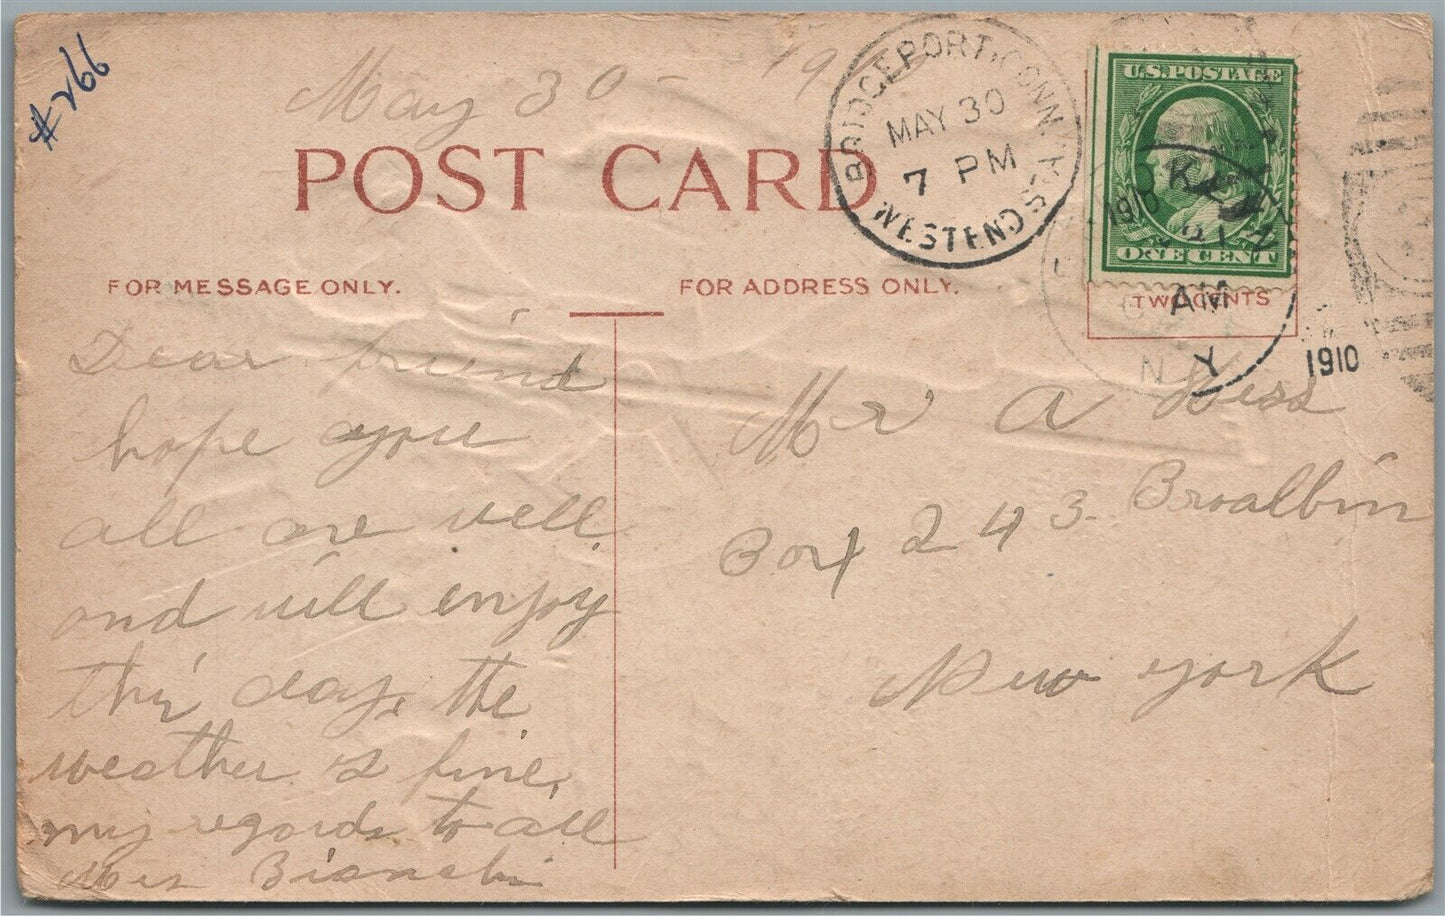 #266
May 30 - 19
POST CARD
BRIDGEPORT, CONN.
MAY 30
7 PM
WEST END STA.
U.S. POSTAGE
1910
ONE CENT
AM
TWO CENTS
N Y
1910
FOR MESSAGE ONLY.
FOR ADDRESS ONLY.
Dear friend
hope you
all are well
and will enjoy
this day, the
weather is fine,
my regards to all
Mrs Bianchi
Mr A Hess
Box 243 Broalbin
New York